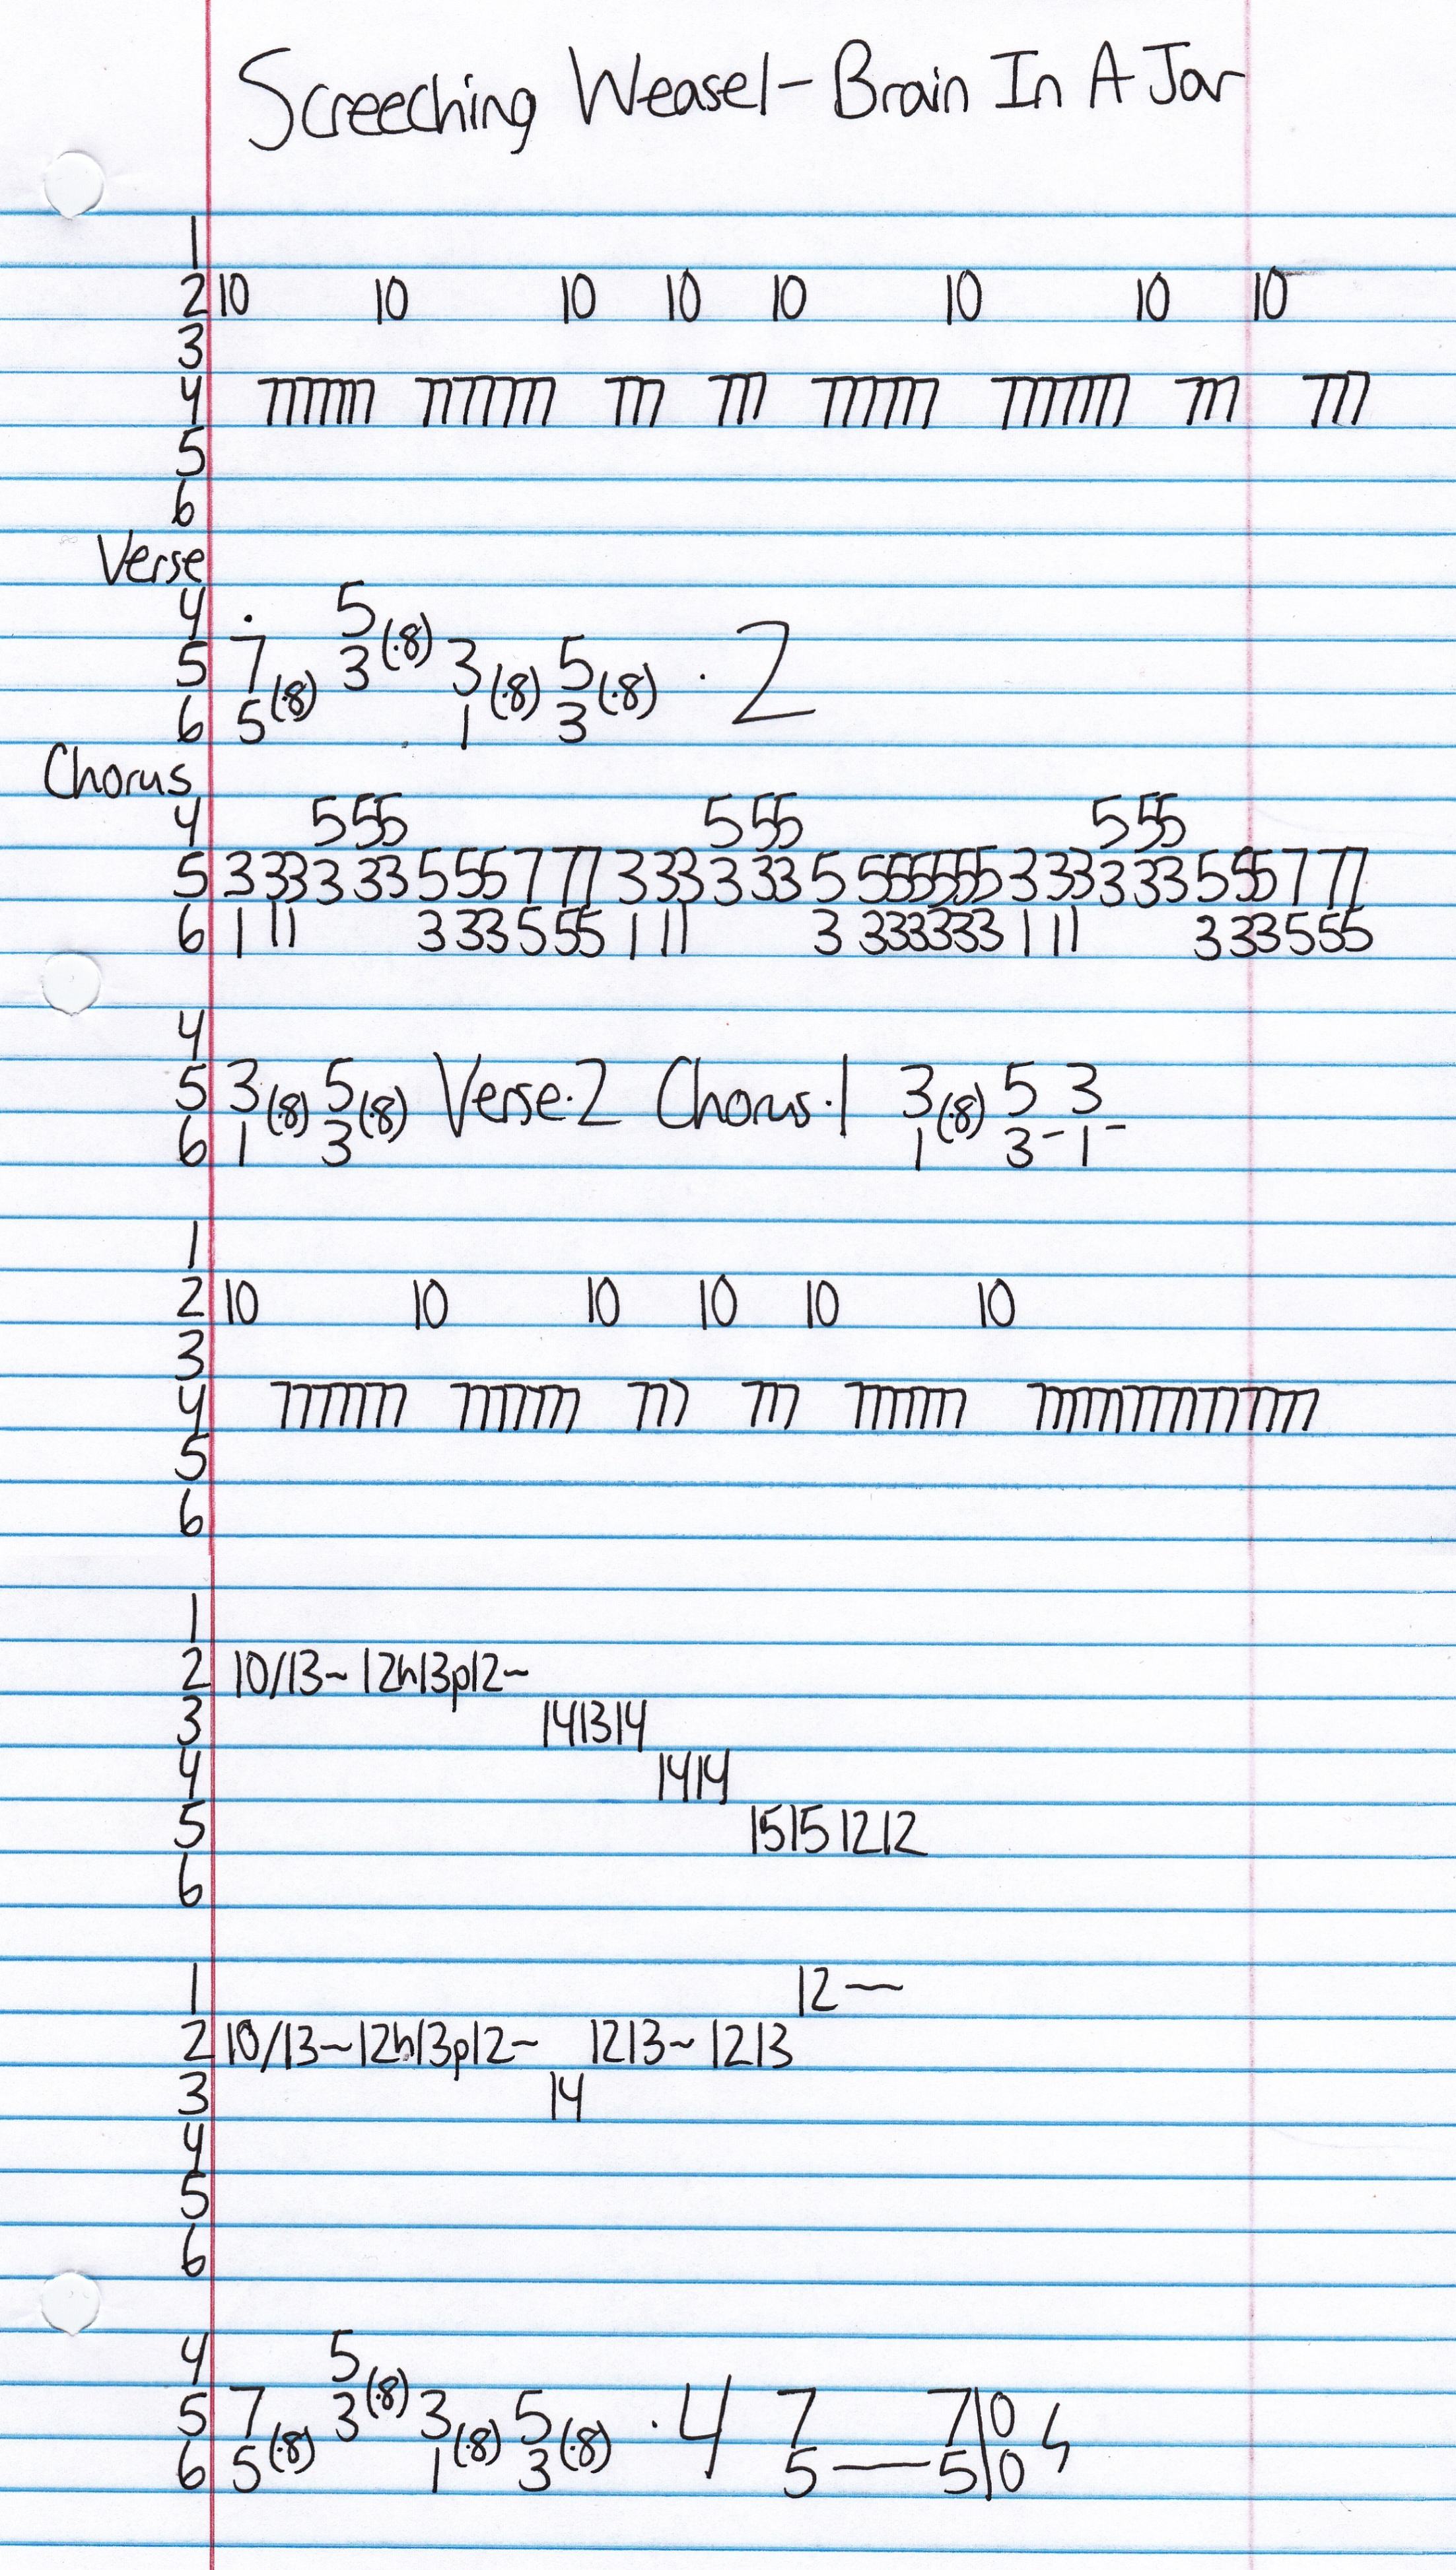 Screeching Weasel - Brain In A Jar
1
2 10 10 10 10 10 10 10 10
3
4 777777 777777 777 777 777777 777777 777 777
5
6
Verse
4 . 5
5 7(·8) 3(·8) 3(·8) 5(·8) · 2
6 5 1 3
Chorus
4 555 555 555
5 333 333 555 777 333 333 5 5555555 333 333 555 777
6 111 333 555 111 3 333333 111 333 555
4
5 3(·8) 5(·8) Verse·2 Chorus·1 3(·8) 5 3
6 1 3 1 3- 1-
1
2 10 10 10 10 10 10
3
4 777777 777777 777 777 777777
5
6
1
2 10/13~ 12h13p12~
3 141314
4 1414
5 1515 1212
6
1 12~
2 10/13~12h13p12~ 1213~ 1213
3 14
4
5
6
4 5
5 7(·8) 3(·8) 3(·8) 5(·8) · 4 7 7\0
6 5 1 3 5—5\0